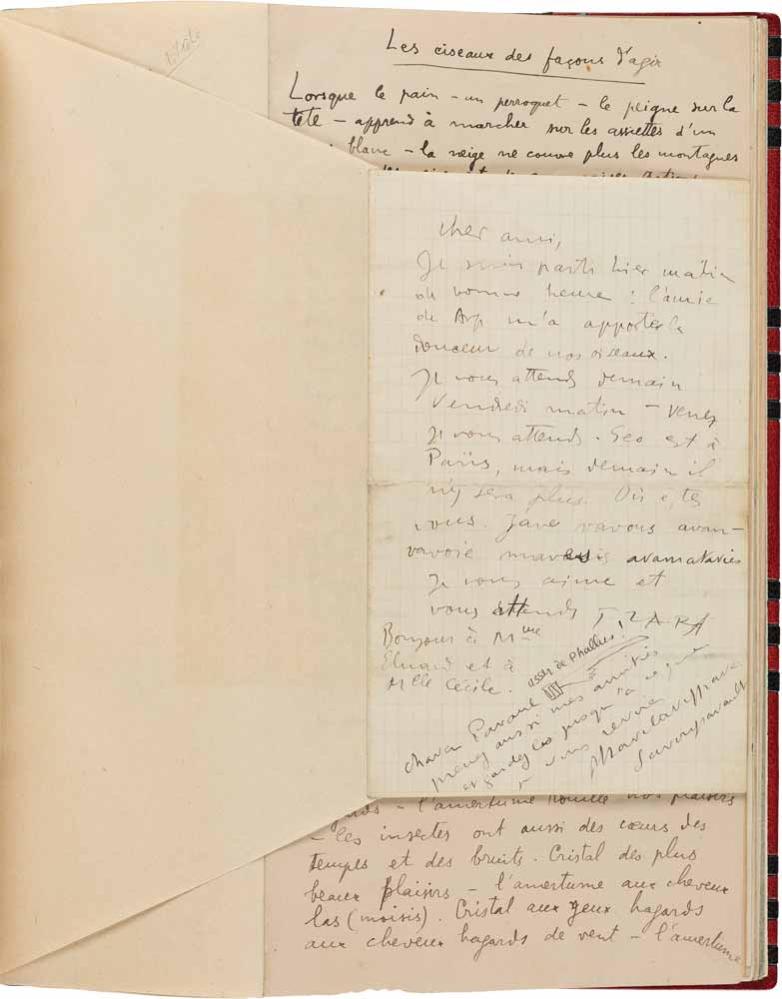 Les ciseaux des façons d'agir
Lorsque le pain – un perroquet – le peigne sur la
tête – apprend à marcher sur les assiettes d'un
blanc – la neige ne couvre plus les montagnes
Cher ami,
Je suis parti hier matin
de bonne heure : l'amie
de Arp m'a apporter la
douceur de nos oiseaux.
Je vous attends demain
Vendredi matin – venez
je vous attends. Geo est à
Paris, mais demain il
n'y sera plus. Où êtes
vous. vavous avan-
vavoie avamatavies
Je vous aime et
vous attends TZARA
Bonjour à Mme
Eluard et à
Mlle Cécile.
assez de Phallus !
prenez aussi mes amitiés
et gardez les jusqu'à ce que
je vous
– l'amertume rouille nos plaisirs
– les insectes ont aussi des cœurs des
temples et des bruits. Cristal des plus
beaux plaisirs – l'amertume aux cheveux
las (moisis). Cristal aux yeux hagards
aux cheveux hagards de vent – l'amertume